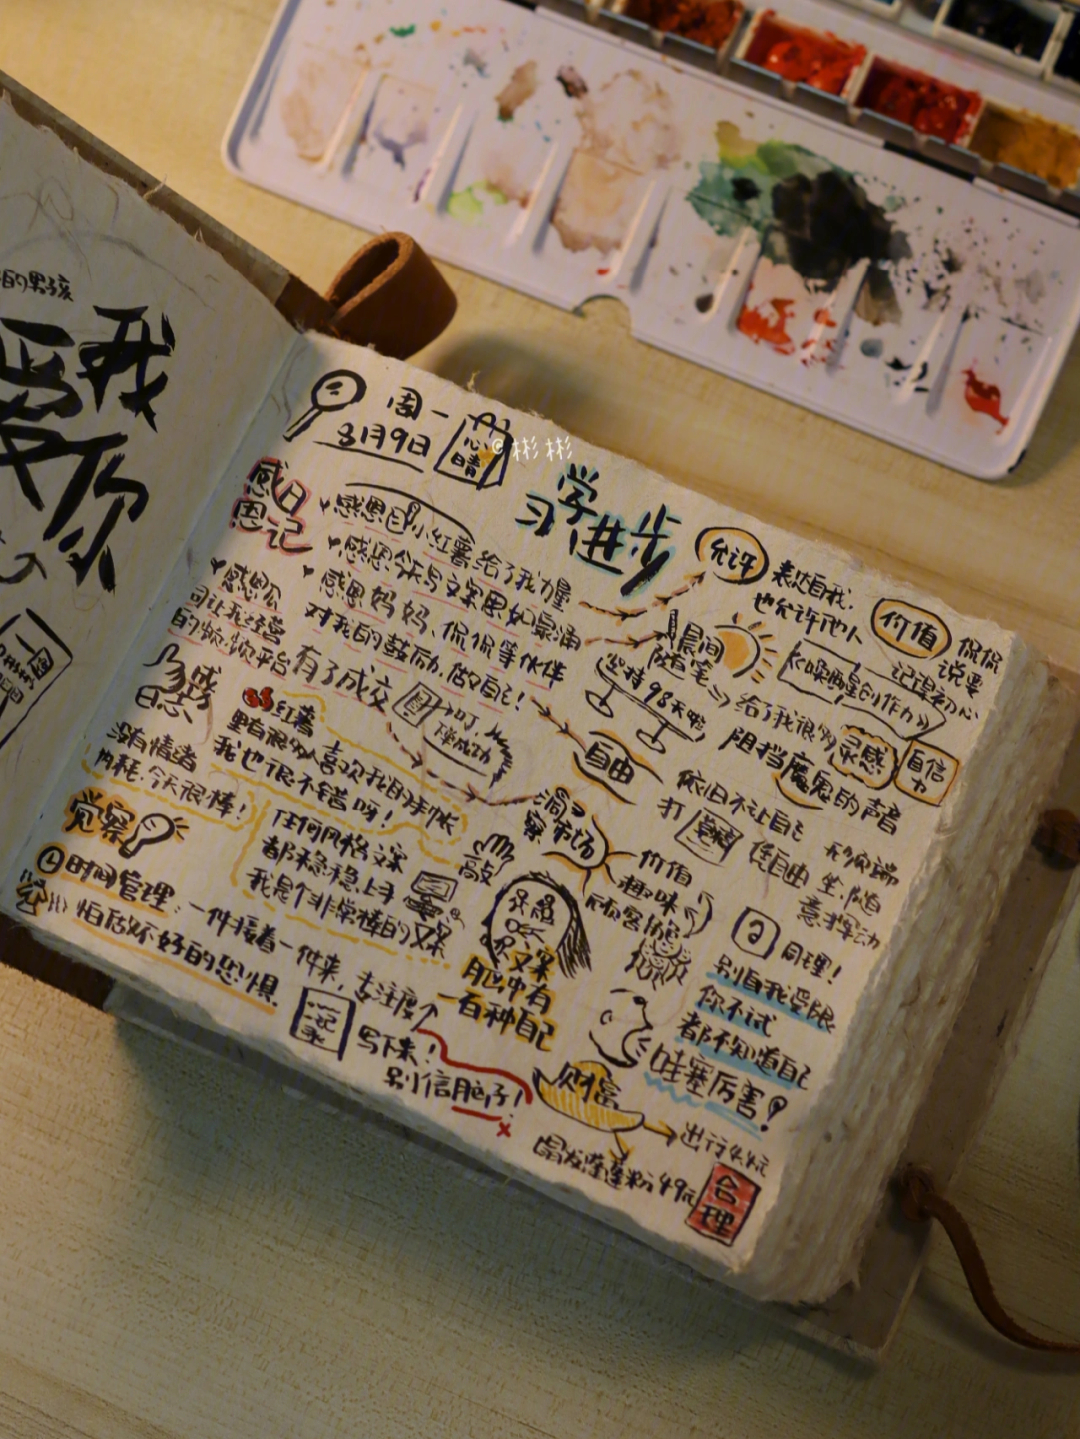 我
爱你
周一
8月9日
心晴
@彬彬
学习进步
感恩日记
感恩小红薯给了我力量
感恩今天写文案思如泉涌
感恩妈妈、侃侃等伙伴
对我的鼓励,做自己!
感恩公司让我经营
的 平台有了成交
下单成功
成 日志
没有情绪
内耗,今天很棒!
红薯
里有很多人喜欢我的手帐
我也很不错呀!
任何风格文案
都稳稳上手
我是个非常棒的文案
觉察
①时间管理:一件接着一件来,专注度↑
怕 不好的恐惧
写下来!
别信脑子!
允许
表达自我,
也允许他人
价值
侃侃
说要
记得初心
晨间
随笔
坚持98天啦
《唤醒创作力》
给了我很多灵感
自信力
阻挡魔鬼的声音
自由
依旧不让自己
打草稿
任自由
生,随
意挥动
洞察市场
价值
趣味
顾客
文案
脑中有
一百种自己
② 同理!
别自我受限
你不试
都不知道自己
哇塞厉害!
财富
出行4.4元
粉49元
合理